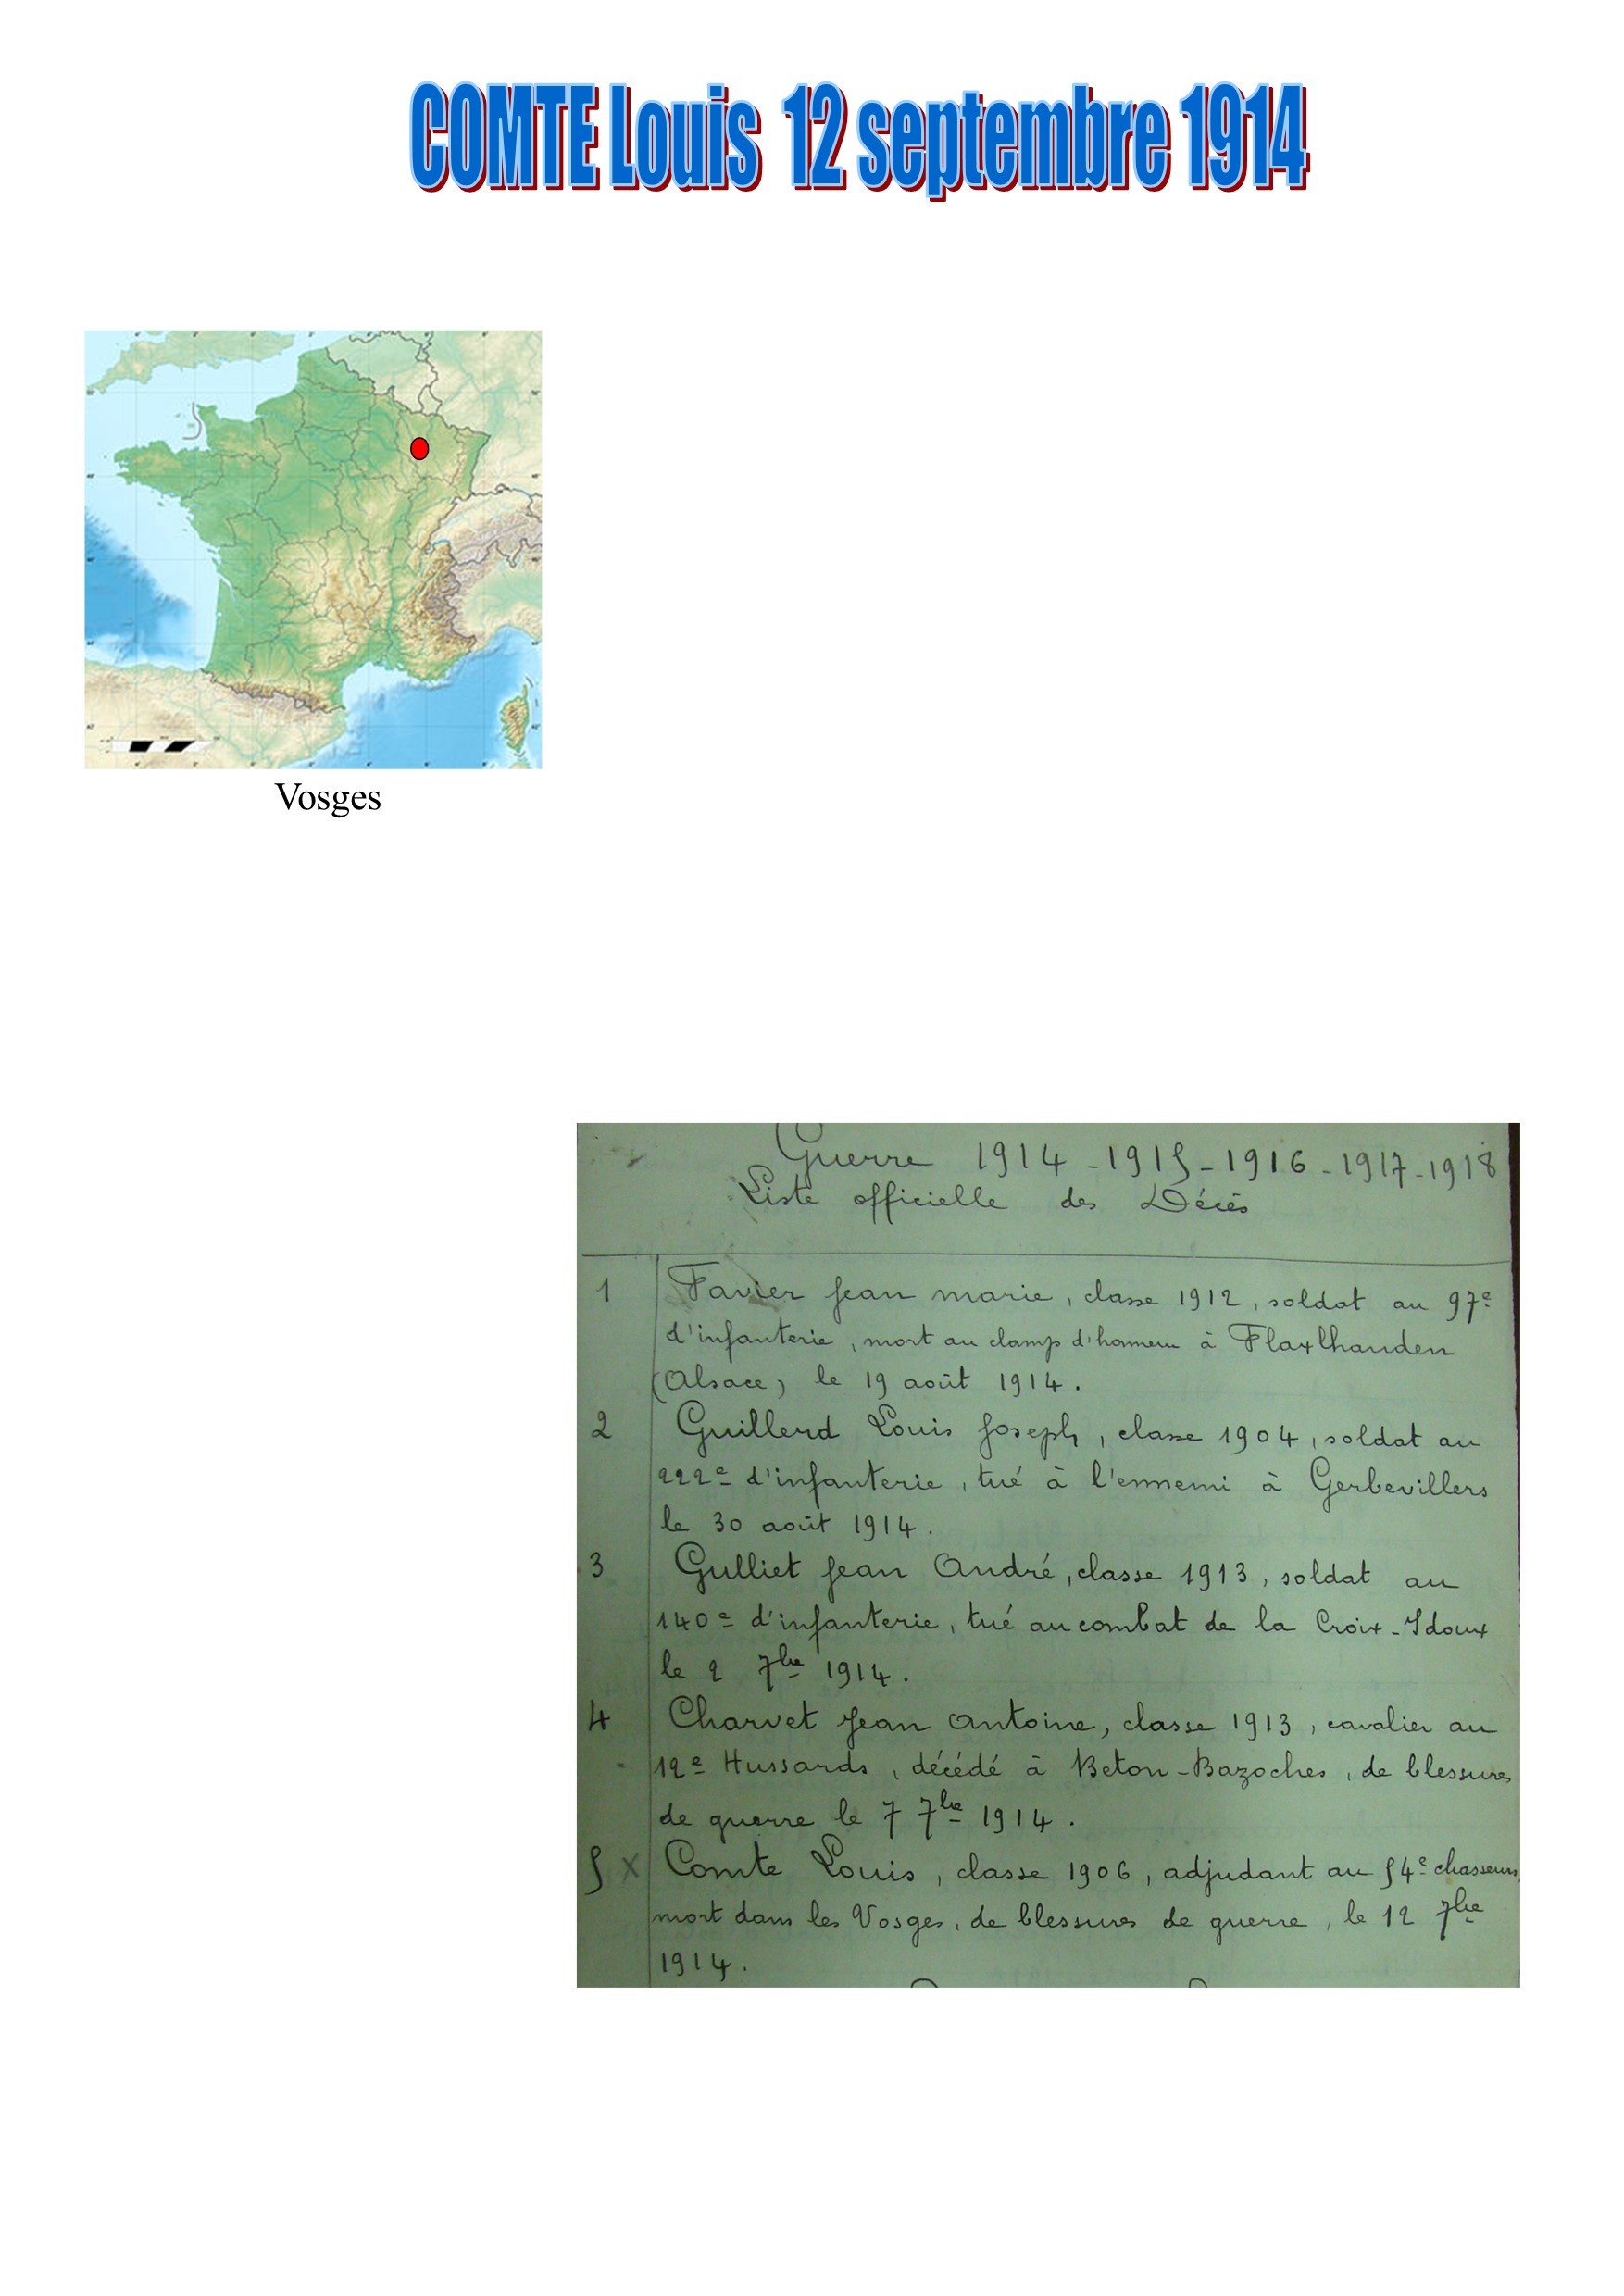 COMTE Louis 12 septembre 1914
Vosges
Guerre 1914-1915-1916-1917-1918
Liste officielle des Décés
1 Favier Jean marie, classe 1912, soldat au 97e
d'infanterie, mort au champ d'honneur à Flaxlhanden
(Alsace) le 19 août 1914.
2 Guillerd Louis Joseph, classe 1904, soldat au
222e d'infanterie, tué à l'ennemi à Gerbevillers
le 30 août 1914.
3 Gulliet Jean André, classe 1913, soldat au
140e d'infanterie, tué au combat de la Croix-Idoux
le 2 7bre 1914.
4 Charvet Jean Antoine, classe 1913, cavalier au
12e Hussards, décédé à Beton-Bazoches, de blessures
de guerre le 7 7bre 1914.
5 X Comte Louis, classe 1906, adjudant au 54e chasseurs,
mort dans les Vosges, de blessures de guerre, le 12 7bre
1914.